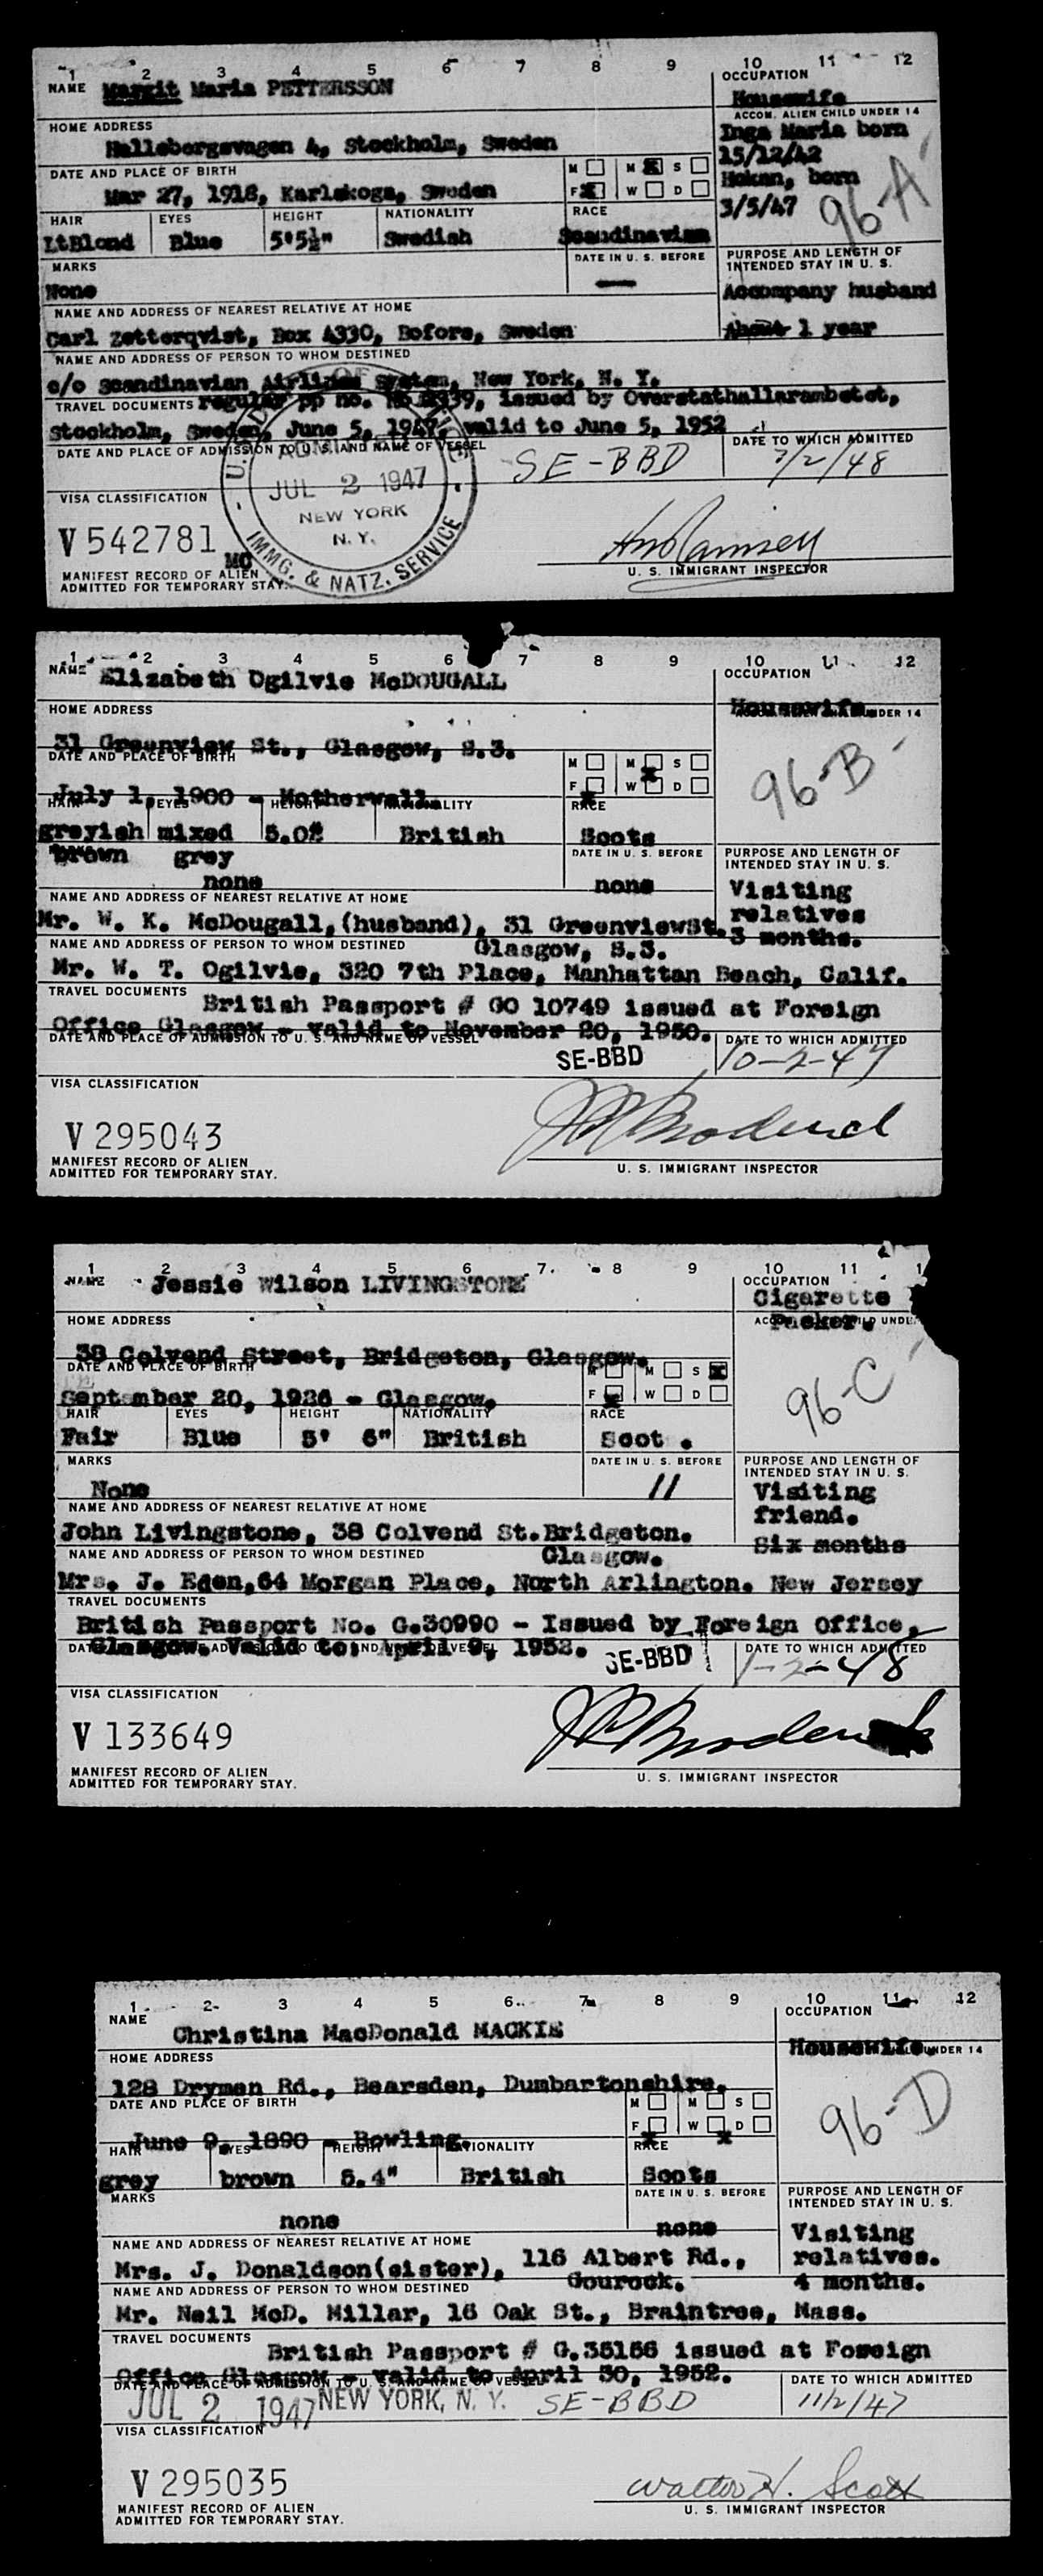 1 2 3 4 5 6 7 8 9 10 11 12
NAME Margit Maria PETTERSSON
OCCUPATION
Housewife
HOME ADDRESS
ACCOM. ALIEN CHILD UNDER 14
Hallebergsvagen 4, Stockholm, Sweden
Inga Maria born
15/12/42
Hokan, born
3/5/47
96-A
DATE AND PLACE OF BIRTH
M M X S
Mar 27, 1918, Karlskoga, Sweden
F X W D
HAIR EYES HEIGHT NATIONALITY RACE
LtBlond Blue 5'5½" Swedish Scandinavian
MARKS DATE IN U. S. BEFORE
None —
PURPOSE AND LENGTH OF
INTENDED STAY IN U. S.
Accompany husband
About 1 year
NAME AND ADDRESS OF NEAREST RELATIVE AT HOME
Carl Zetterqvist, Box 4330, Bofors, Sweden
NAME AND ADDRESS OF PERSON TO WHOM DESTINED
c/o Scandinavian Airlines System, New York, N. Y.
TRAVEL DOCUMENTS regular pp no. issued by Overstathallarambetet,
Stockholm, Sweden, June 5, 1947, valid to June 5, 1952
DATE AND PLACE OF ADMISSION TO U. S. AND NAME OF VESSEL
SE-BBD
DATE TO WHICH ADMITTED
7/2/48
JUL 2 1947
NEW YORK
N. Y.
IMMG. & NATZ. SERVICE
VISA CLASSIFICATION
V 542781
MC
MANIFEST RECORD OF ALIEN
ADMITTED FOR TEMPORARY STAY.
U. S. IMMIGRANT INSPECTOR
1 2 3 4 5 6 7 8 9 10 11 12
NAME Elizabeth Ogilvie McDOUGALL
OCCUPATION
Housewife
UNDER 14
HOME ADDRESS
31 Greenview St., Glasgow, S.3.
96-B
DATE AND PLACE OF BIRTH
M M X S
July 1, 1900 - Motherwell.
F X W D
HAIR EYES HEIGHT NATIONALITY RACE
greyish mixed 5.0½ British Scots
brown grey
DATE IN U. S. BEFORE
none none
PURPOSE AND LENGTH OF
INTENDED STAY IN U. S.
Visiting
relatives
3 months.
NAME AND ADDRESS OF NEAREST RELATIVE AT HOME
Mr. W. K. McDougall,(husband), 31 GreenviewSt.
Glasgow, S.3.
NAME AND ADDRESS OF PERSON TO WHOM DESTINED
Mr. W. T. Ogilvie, 320 7th Place, Manhattan Beach, Calif.
TRAVEL DOCUMENTS British Passport # GO 10749 issued at Foreign
Office Glasgow - valid to November 20, 1950.
DATE AND PLACE OF ADMISSION TO U. S. AND NAME OF VESSEL
SE-BBD
DATE TO WHICH ADMITTED
10-2-47
VISA CLASSIFICATION
V 295043
MANIFEST RECORD OF ALIEN
ADMITTED FOR TEMPORARY STAY.
U. S. IMMIGRANT INSPECTOR
1 2 3 4 5 6 7 8 9 10 11 1
NAME Jessie Wilson LIVINGSTONE
OCCUPATION
Cigarette
Packer.
HOME ADDRESS
38 Colvend Street, Bridgeton, Glasgow.
96-C
DATE AND PLACE OF BIRTH
M M S X
September 20, 1926 - Glasgow.
F X W D
HAIR EYES HEIGHT NATIONALITY RACE
Fair Blue 5' 6" British Scot .
MARKS DATE IN U. S. BEFORE
None //
PURPOSE AND LENGTH OF
INTENDED STAY IN U. S.
Visiting
friend.
Six months
NAME AND ADDRESS OF NEAREST RELATIVE AT HOME
John Livingstone, 38 Colvend St.Bridgeton.
Glasgow.
NAME AND ADDRESS OF PERSON TO WHOM DESTINED
Mrs. J. Eden,64 Morgan Place, North Arlington. New Jersey
TRAVEL DOCUMENTS
British Passport No. G.30990 - Issued by Foreign Office,
Glasgow. Valid to: April 9, 1952.
SE-BBD
DATE TO WHICH ADMITTED
1-2-48
VISA CLASSIFICATION
V 133649
MANIFEST RECORD OF ALIEN
ADMITTED FOR TEMPORARY STAY.
U. S. IMMIGRANT INSPECTOR
1 2 3 4 5 6 7 8 9 10 11 12
NAME Christina MacDonald MACKIE
OCCUPATION
Housewife.
UNDER 14
HOME ADDRESS
128 Drymen Rd., Bearsden, Dumbartonshire.
96-D
DATE AND PLACE OF BIRTH
M M S
F X W X D
June 9, 1890 - Bowling.
HAIR EYES HEIGHT NATIONALITY RACE
grey brown 5.4" British Scots
MARKS DATE IN U. S. BEFORE
none none
PURPOSE AND LENGTH OF
INTENDED STAY IN U. S.
Visiting
relatives.
4 months.
NAME AND ADDRESS OF NEAREST RELATIVE AT HOME
Mrs. J. Donaldson(sister), 116 Albert Rd.,
Gourock.
NAME AND ADDRESS OF PERSON TO WHOM DESTINED
Mr. Neil McD. Millar, 16 Oak St., Braintree, Mass.
TRAVEL DOCUMENTS British Passport # G.35156 issued at Foreign
Office Glasgow - valid to April 30, 1952.
DATE AND PLACE OF ADMISSION TO U. S. AND NAME OF VESSEL
JUL 2 1947 NEW YORK, N. Y. SE-BBD
DATE TO WHICH ADMITTED
11/2/47
VISA CLASSIFICATION
V 295035
Walter H. Scott
MANIFEST RECORD OF ALIEN
ADMITTED FOR TEMPORARY STAY.
U. S. IMMIGRANT INSPECTOR